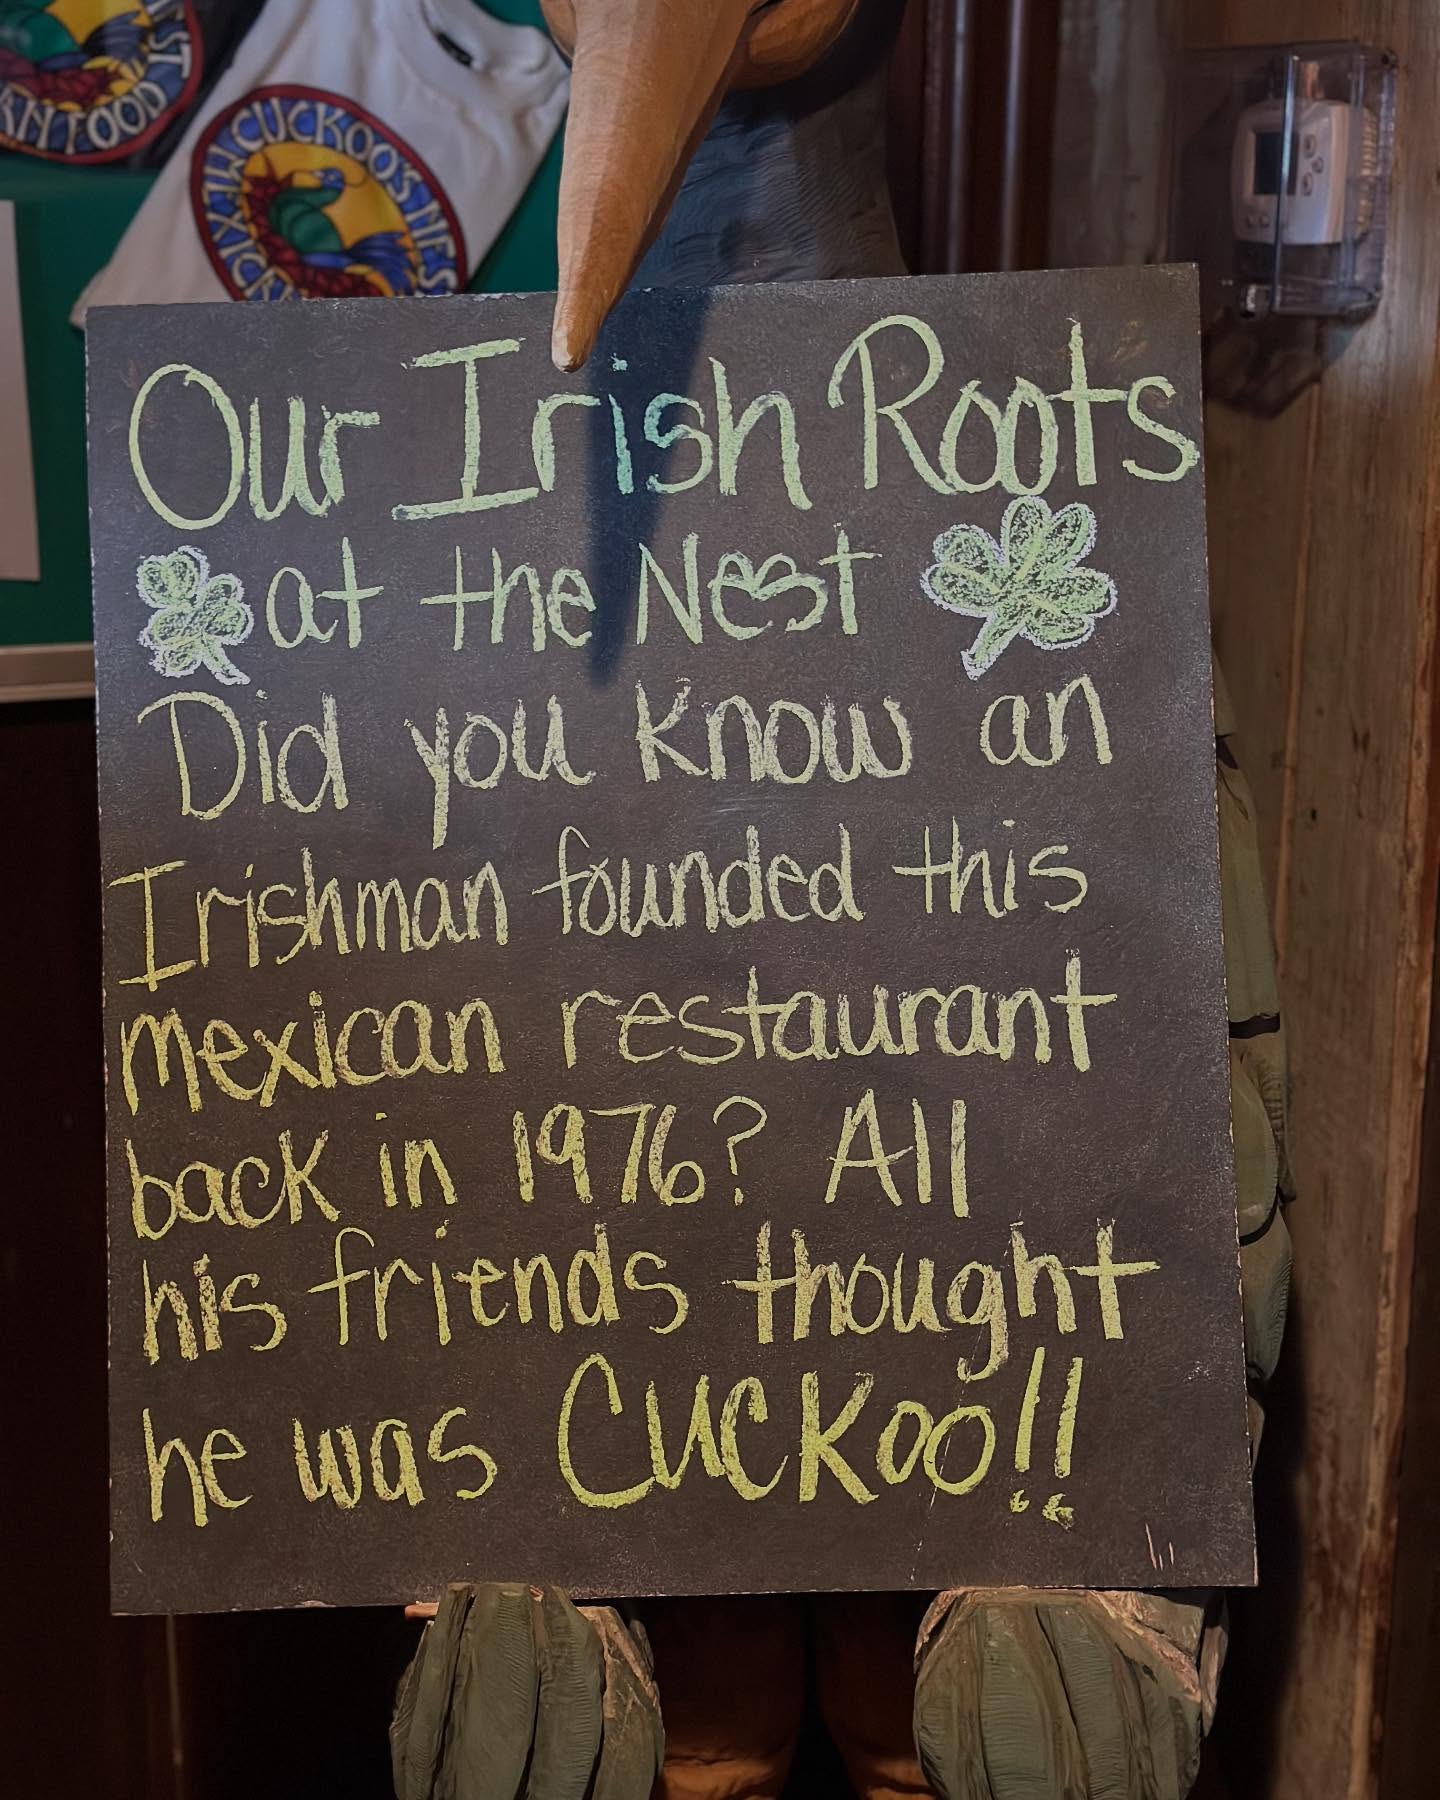 RN FOOD
CUCKOO'S NEST
MEXICAN
Our Irish Roots
at the Nest
Did you know an
Irishman founded this
mexican restaurant
back in 1976? All
his friends thought
he was Cuckoo!!